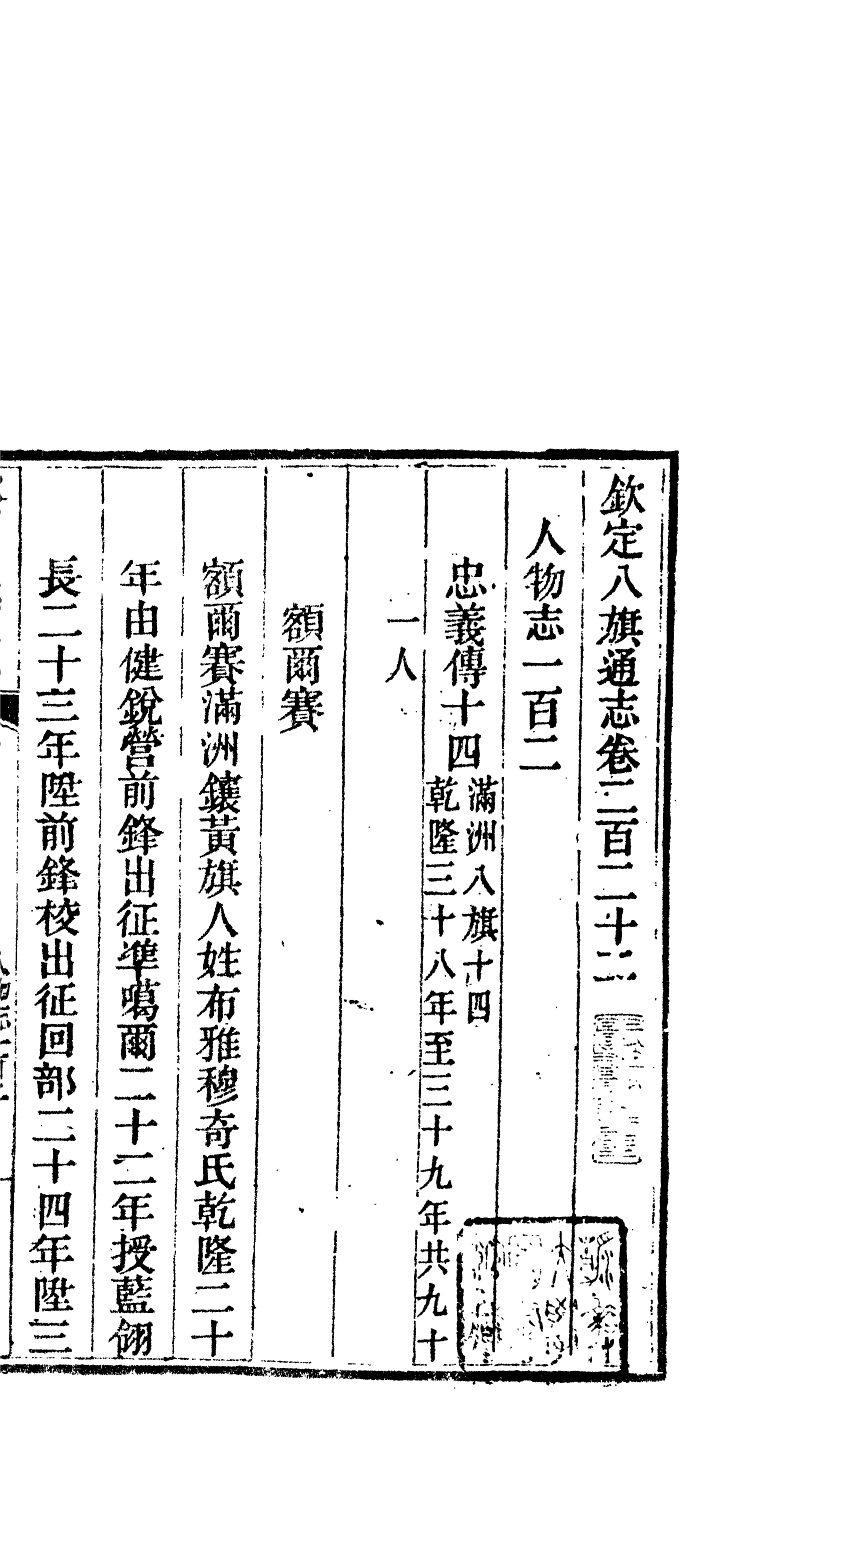 欽定八旗通志卷二百二十二
人物志一百二
忠義傳十四 滿洲八旗十四
乾隆三十八年至三十九年共九十
一人
額爾賽
額爾賽滿洲鑲黃旗人姓布雅穆奇氏乾隆二十
年由健銳營前鋒出征準噶爾二十二年授藍翎
長二十三年陞前鋒校出征回部二十四年陞三